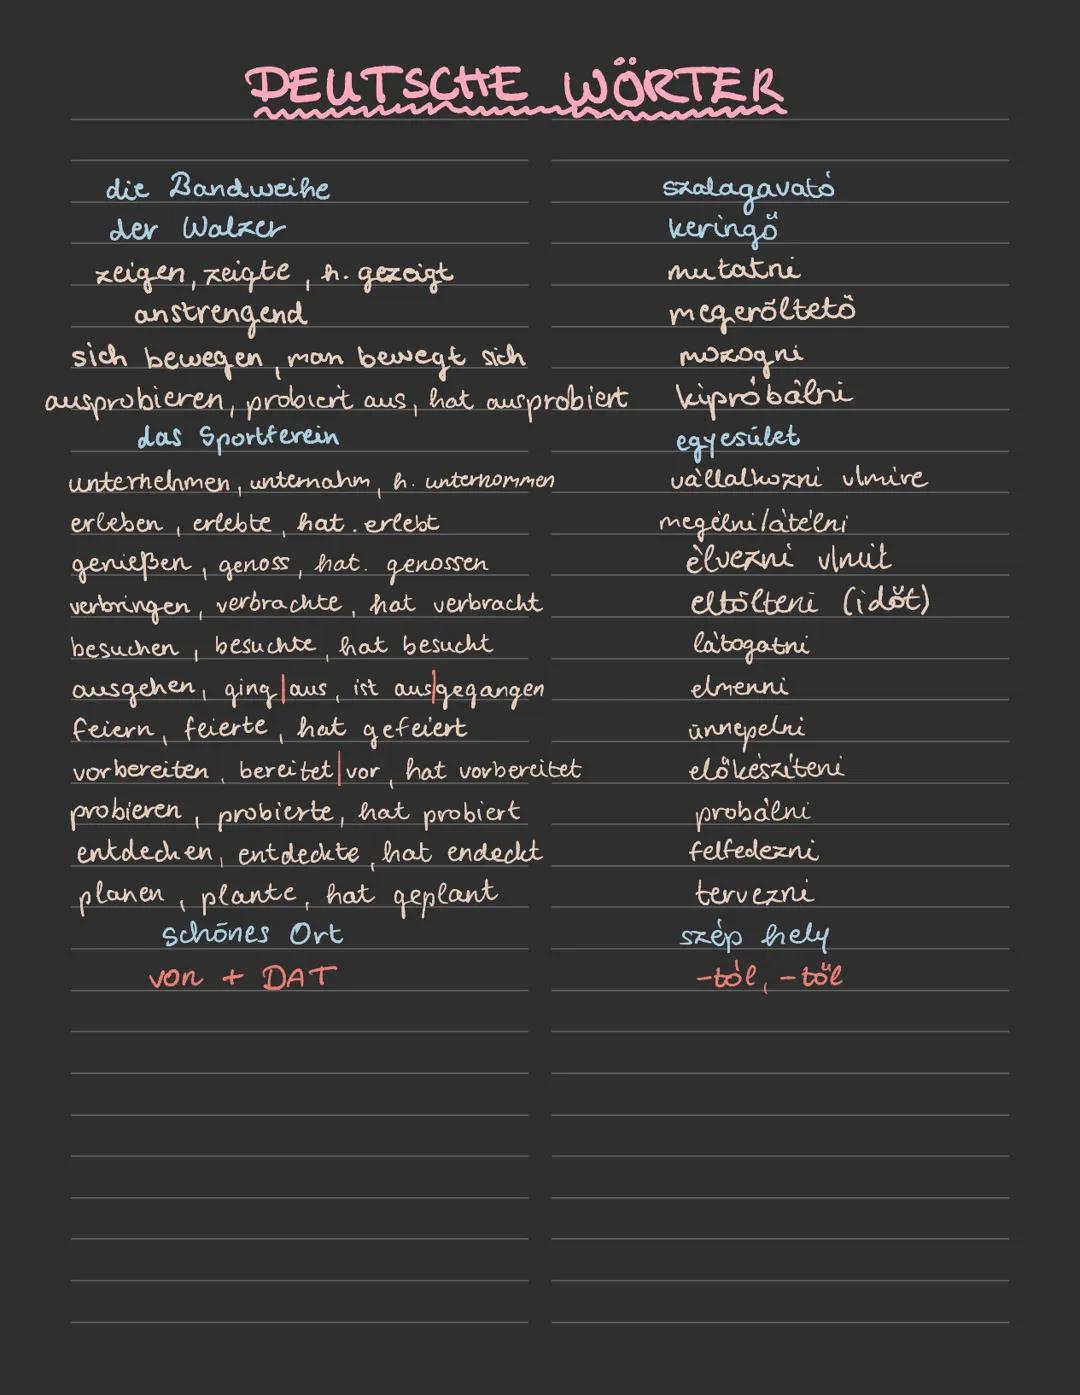 DEUTSCHE WÖRTER
die Bandweihe szalagavató
der Walzer keringő
zeigen, zeigte, h. gezeigt mutatni
anstrengend megerőltető
sich bewegen, man bewegt sich mozogni
ausprobieren, probiert aus, hat ausprobiert kipróbálni
das Sportferein egyesület
unternehmen, unternahm, h. unternommen vállalkozni vlmire
erleben, erlebte, hat. erlebt megélni/átélni
genießen, genoss, hat. genossen élvezni vlmit
verbringen, verbrachte, hat verbracht eltölteni (időt)
besuchen, besuchte, hat besucht látogatni
ausgehen, ging|aus, ist aus|gegangen elmenni
feiern, feierte, hat gefeiert ünnepelni
vorbereiten, bereitet|vor, hat vorbereitet előkészíteni
probieren, probierte, hat probiert probálni
entdecken, entdeckte, hat endeckt felfedezni
planen, plante, hat geplant tervezni
schönes Ort szép hely
von + DAT -tól, -től